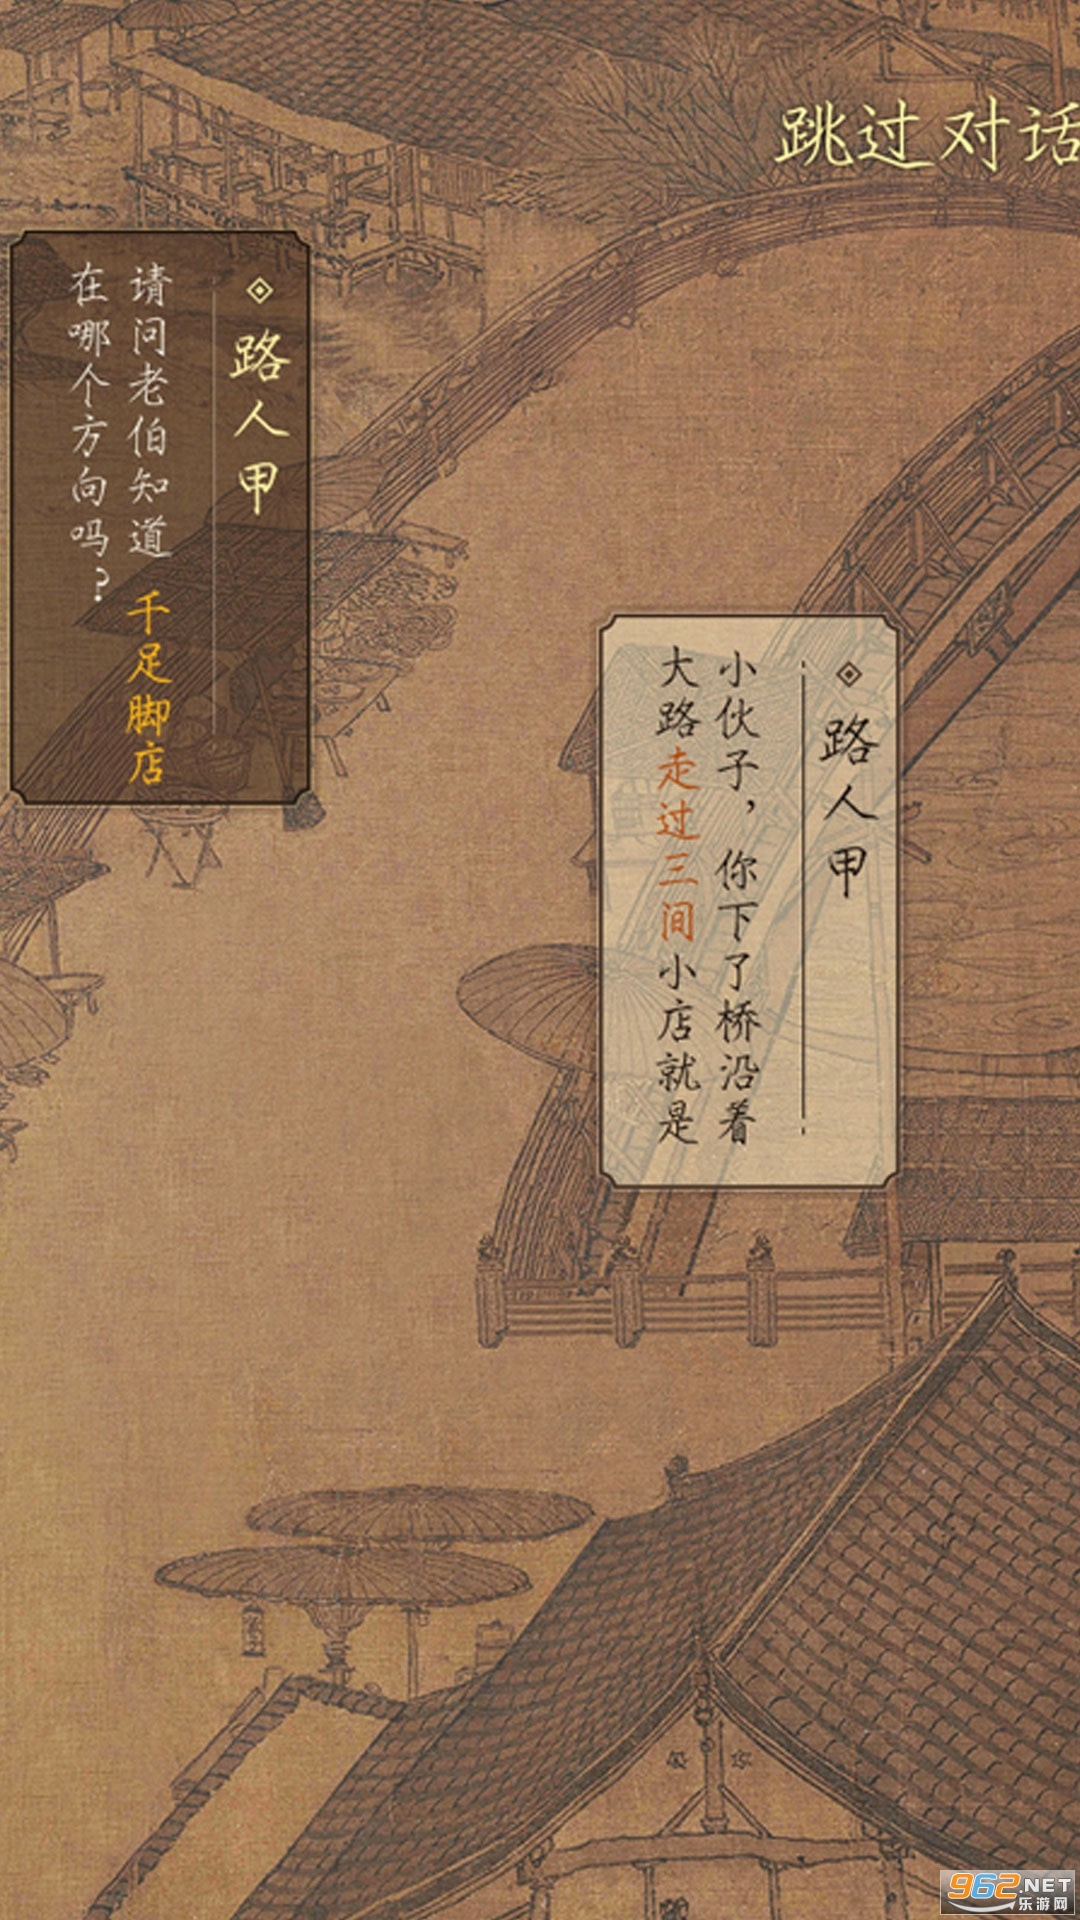 跳过对话
路人甲
请问老伯知道 千足脚店
在哪个方向吗?
路人甲
小伙子，你下了桥沿着
大路走过三间小店就是
962.NET
乐游网